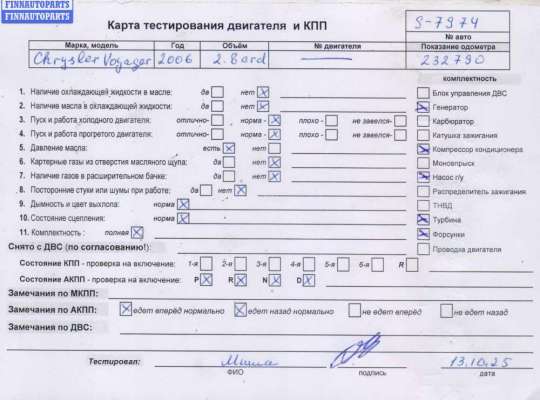 FINNAUTOPARTS
FINNAUTOPARTS
Карта тестирования двигателя и КПП
9-7974
№ авто
Марка, модель Год Объём № двигателя Показание одометра
Chrysler Voyager 2006 2.8 crd — 232790
комплектность
1. Наличие охлаждающей жидкости в масле: да нет
Блок управления ДВС
2. Наличие масла в охлаждающей жидкости: да нет
Генератор
3. Пуск и работа холодного двигателя: отлично- норма - плохо - не завелся-
Карбюратор
4. Пуск и работа прогретого двигателя: отлично- норма - плохо - не завелся-
Катушка зажигания
5. Давление масла: есть нет
Компрессор кондиционера
6. Картерные газы из отверстия масляного щупа: да нет
Моновпрыск
7. Наличие газов в расширительном бачке: да нет
Насос г/у
8. Посторонние стуки или шумы при работе: да нет
Распределитель зажигания
9. Дымность и цвет выхлопа: норма
ТНВД
10. Состояние сцепления: норма
Турбина
11. Комплектность : полная
Форсунки
Снято с ДВС (по согласованию!):
Проводка двигателя
Состояние КПП - проверка на включение: 1-я 2-я 3-я 4-я 5-я 6-я R
Состояние АКПП - проверка на включение: P R N D
Замечания по МКПП:
Замечания по АКПП: едет вперёд нормально едет назад нормально не едет вперёд не едет назад
Замечания по ДВС:
Тестировал: Миша 13.10.25
ФИО подпись дата